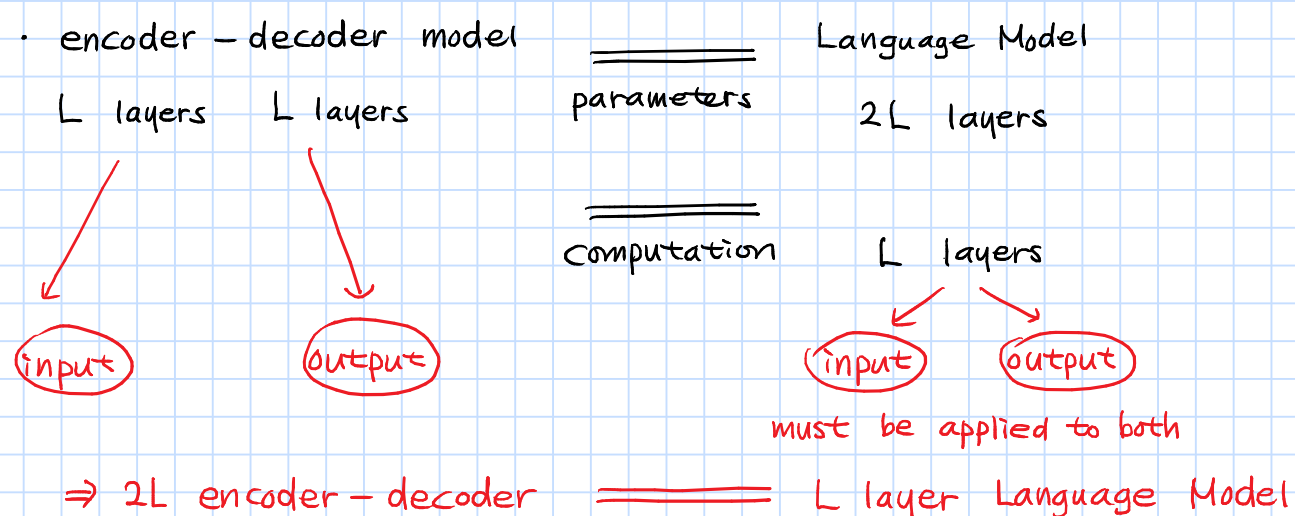 · encoder – decoder model ═ Language Model
L layers L layers parameters 2L layers
computation L layers
input output input output
must be applied to both
⇒ 2L encoder – decoder ═ L layer Language Model